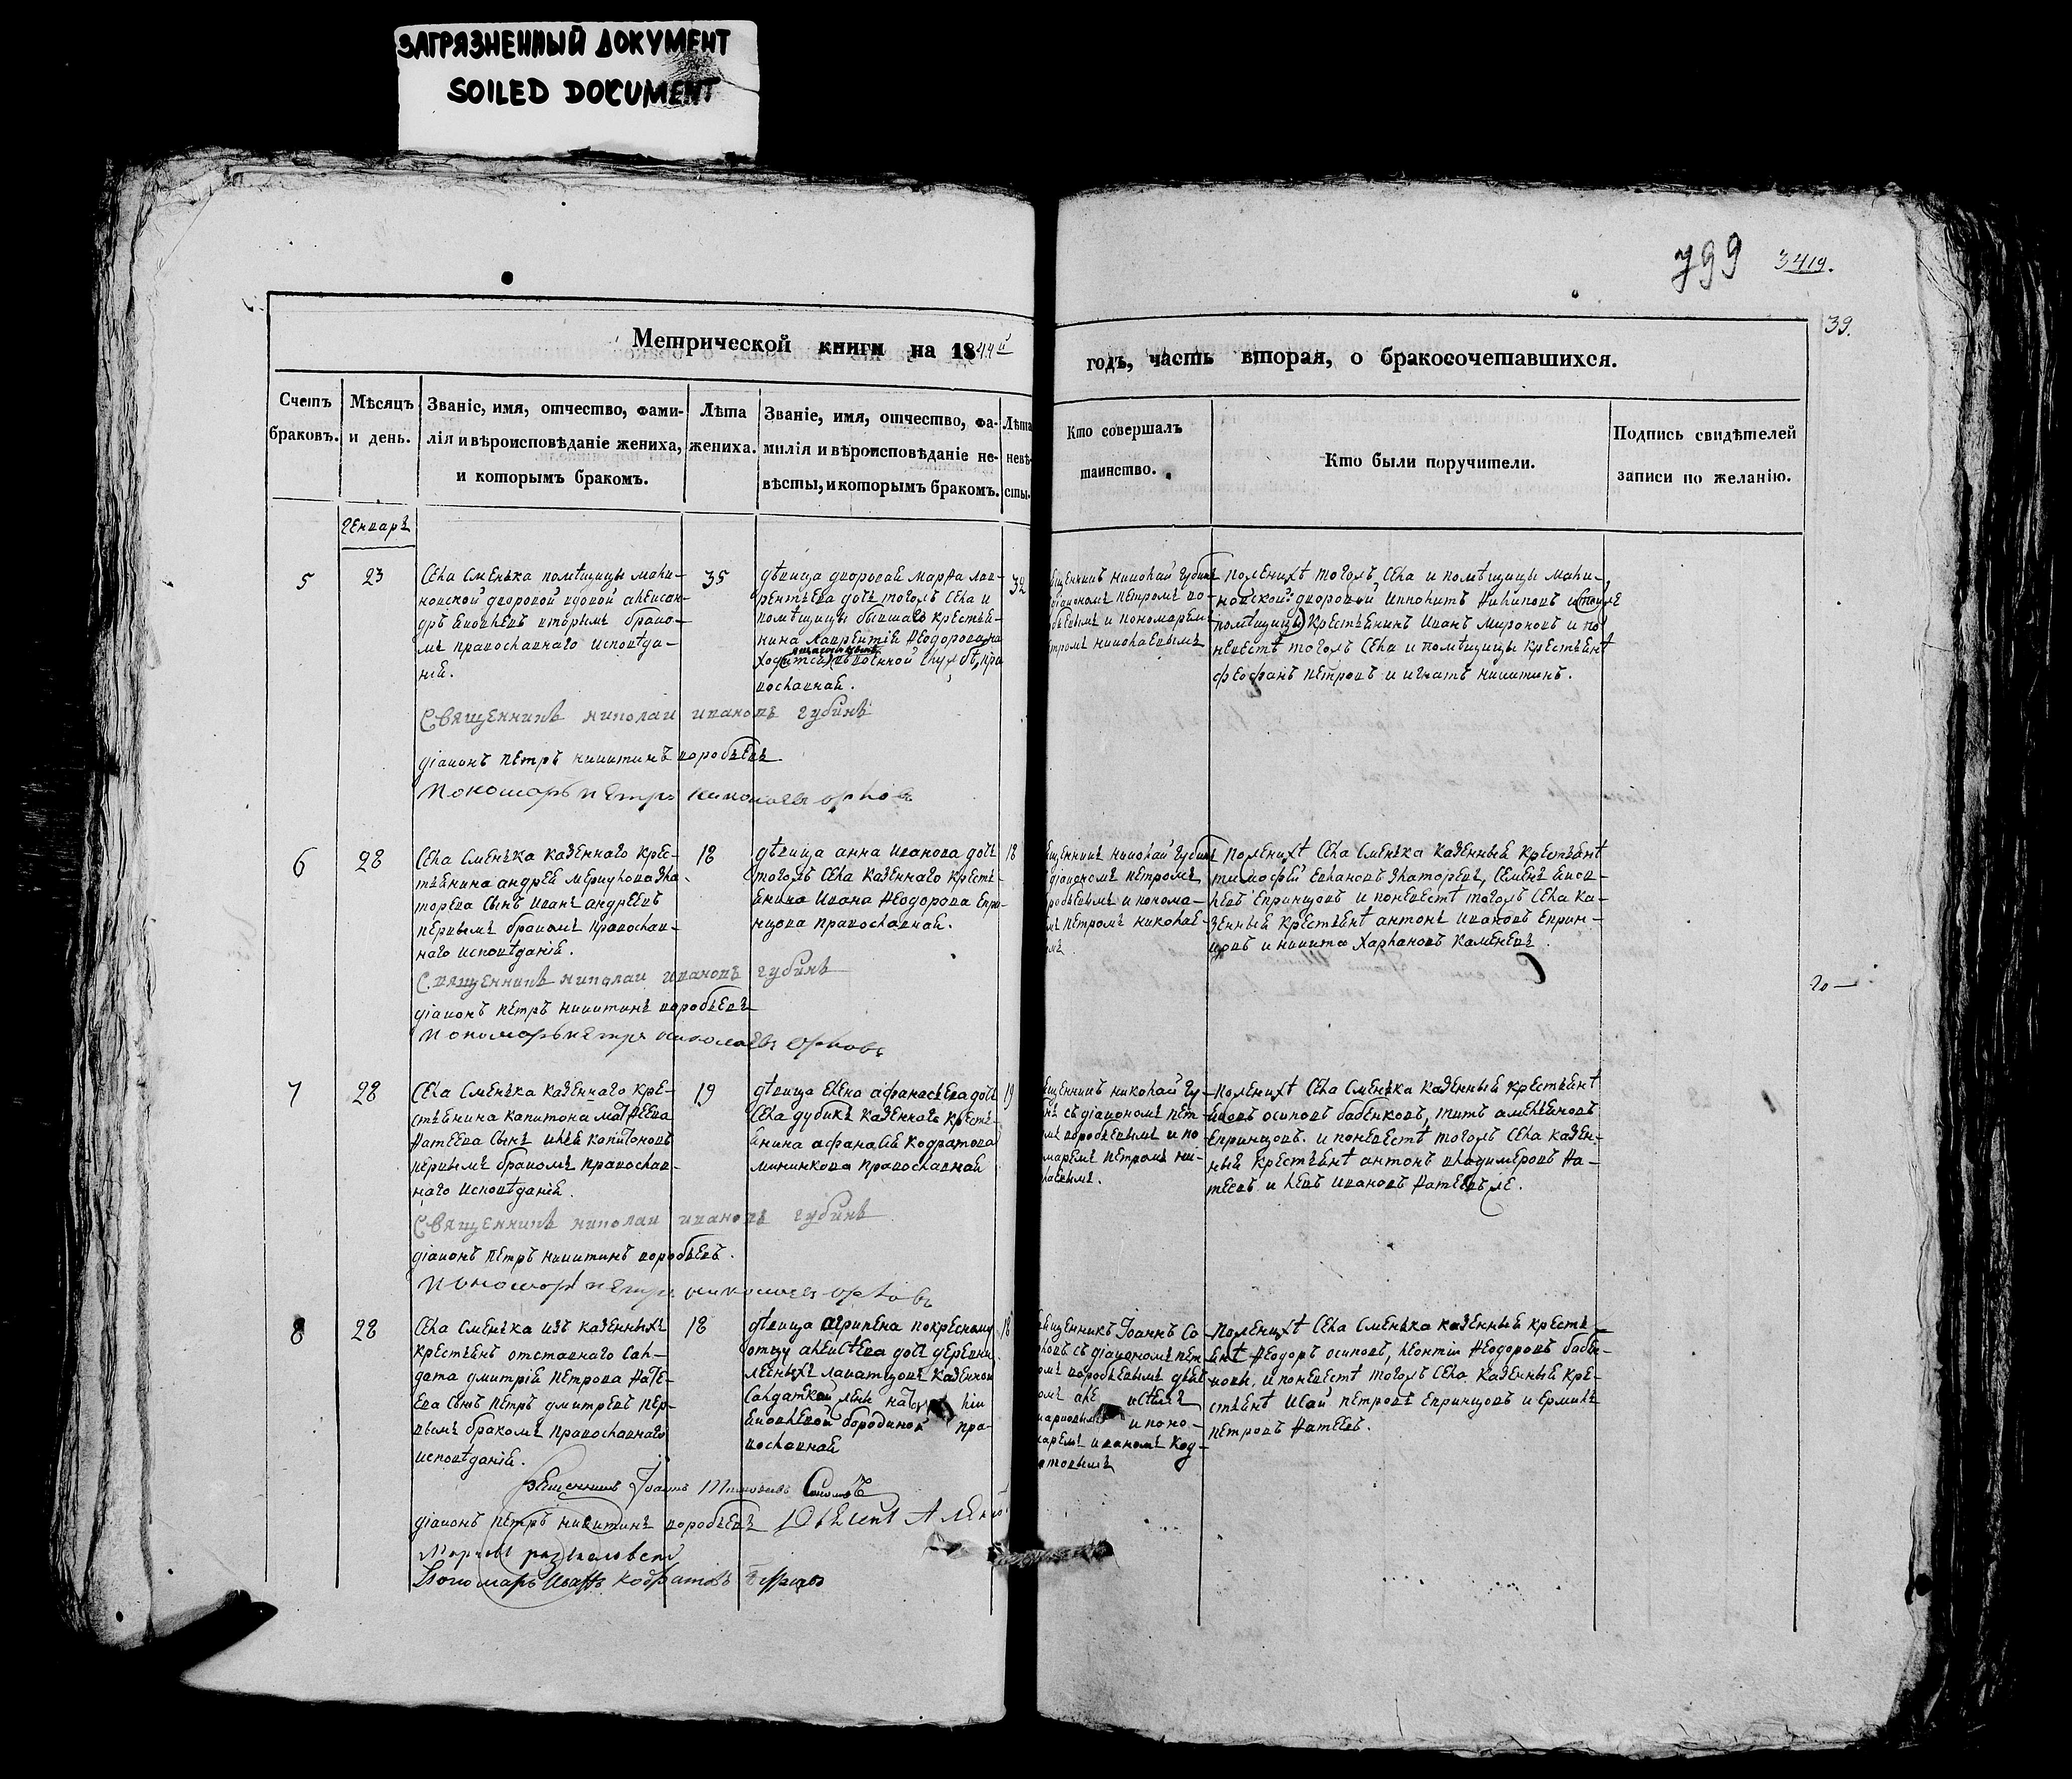 ЗАГРЯЗНЕННЫЙ ДОКУМЕНТ
SOILED DOCUMENT
799 3419.
39.
Метрической книги на 1844й
годъ, часть вторая, о бракосочетавшихся.
Счетъ браковъ.
Мѣсяцъ и день.
Званіе, имя, отчество, фами-
лія и вѣроисповѣданіе жениха,
и которымъ бракомъ.
Лѣта жениха.
Званіе, имя, отчество, фа-
милія и вѣроисповѣданіе не-
вѣсты, и которымъ бракомъ.
Лѣта невѣ-
сты.
Кто совершалъ
таинство.
Кто были поручители.
Подпись свидѣтелей
записи по желанію.
Генварь
5
23
села Смѣнька помѣщицы Мали-
новской дворовой вдовой Алексан-
дръ Яковлевъ вторымъ брако-
мъ православнаго исповѣда-
ній.
35
дѣвица дворовая Марѳа Лав-
рентьева дочь тогожъ села и
помѣщицы бывшаго крестья-
нина Лаврентія Ѳеодорова
военной службѣ, пра
вославная.
32
Николай Губинъ
діакономъ Петромъ во-
и пономарем
Николаевымъ
по женихѣ тогожъ села и помѣщицы Мали-
новской: дворовой и тоя же
помѣщицы крестьянинъ Иванъ Мироновъ и по
невестѣ тогожъ села и помѣщицы крестьянѣ
Феофанъ Петровъ и Игнатъ Никитинъ.
Священникъ Николай Ивановъ Губинъ
діаконъ Петръ Никитинъ Воробьевъ.
Пономарь Петръ Николаевъ Орловъ
6
28
села Смѣнька казеннаго крес-
тьянина Андрея
сынъ Иванъ Андреевъ
первымъ бракомъ православ-
наго исповѣданія.
18
дѣвица Анна Иванова дочь
тогожъ села казеннаго кресть-
янина Ивана Ѳеодорова Епри-
нцова православная.
18
Николай Губинъ
діакономъ Петромъ
и понома-
Петромъ Николае-
по женихѣ села Смѣнька казенный крестьянѣ
Тимофей Семенъ Яков-
левъ Епринцовъ и по невестѣ тогожъ села ка-
зенный крестьянѣ Антонъ Ивановъ Еприн-
цовъ и Никита Харлановъ Каменевъ.
Священникъ Николай Ивановъ Губинъ
діаконъ Петръ Никитинъ Воробьевъ
Пономарь Петръ Николаевъ Орловъ
20
7
28
села Смѣнька казеннаго кре-
стьянина Капитона Матѳеева
Фатеева сынъ Илья Капитоновъ
первымъ бракомъ православ-
наго исповѣданія.
19
дѣвица Елена Афанасьева дочь
села Дубикъ казеннаго кресть-
янина Афанасія Кодратова
Мининкова православная
19
Николай Гу-
съ діакономъ Пет-
Воробьевымъ и по
Петромъ Ни-
по женихѣ села Смѣнька казенный крестьянѣ
Яковъ Осиповъ Бабенковъ, Титъ Амельяновъ
Епринцовъ. и по невестѣ тогожъ села казен-
ный крестьянѣ Антонъ Владимеровъ Фа-
теевъ и Левъ Ивановъ Фатеевъ же.
Священникъ Николай Ивановъ Губинъ
діаконъ Петръ Никитинъ Воробьевъ.
Пономарь Петръ Николаевъ Орловъ
8
28
села Смѣнька изъ казенныхъ
крестьянъ отставнаго сал-
дата Дмитрія Петрова Фате-
ева сынъ Петръ Дмитревъ пер-
вымъ бракомъ православнаго
исповѣданія.
18
дѣвица Агрипена по кресному
отцу Алексѣева дочь деревни
казенной
салдатской жены
Яковлевой Бородиной пра-
вославная
18
Іоаннъ Со
съ діакономъ Пет
Воробьевымъ
и поно-
Иваномъ Код-
по женихѣ села Смѣнька казенный кресть-
янѣ Ѳеодоръ Осиповъ, Леонтій Ѳеодоровъ Бабен-
ковы. и по невестѣ тогожъ села, казенный кре-
стьянѣ Исай Петровъ Епринцовъ и Ермилъ
Петровъ Фатеевъ.
Священникъ Іоаннъ
діаконъ Петръ Никитинъ Воробьевъ
Пономарь Иванъ Кодратовъ